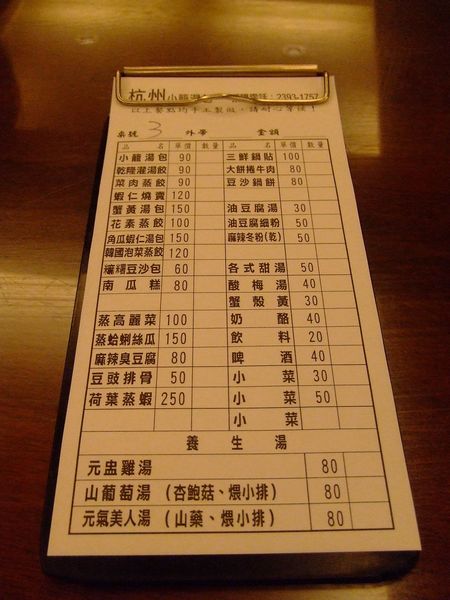 杭州 小籠湯包 2393-1757
以上餐點均手工製做，請耐心等候！
桌號 3 外帶 金額
品名 單價 數量 品名 單價 數量
小籠湯包 90 三鮮鍋貼 100
乾隆灌湯餃 90 大餅捲牛肉 80
菜肉蒸餃 90 豆沙鍋餅 80
蝦仁燒賣 120
蟹黃湯包 150 油豆腐湯 30
花素蒸餃 100 油豆腐細粉 50
角瓜蝦仁湯包 150 麻辣冬粉(乾) 50
韓國泡菜蒸餃 120
豆沙包 60 各式甜湯 50
南瓜糕 80 酸梅湯 40
蟹殼黃 30
蒸高麗菜 100 奶酪 40
蒸蛤蜊絲瓜 150 飲料 20
麻辣臭豆腐 80 啤酒 40
豆豉排骨 50 小菜 30
荷葉蒸蝦 250 小菜 50
小菜
養生湯
元盅雞湯 80
山葡萄湯 (杏鮑菇、煨小排) 80
元氣美人湯 (山藥、煨小排) 80